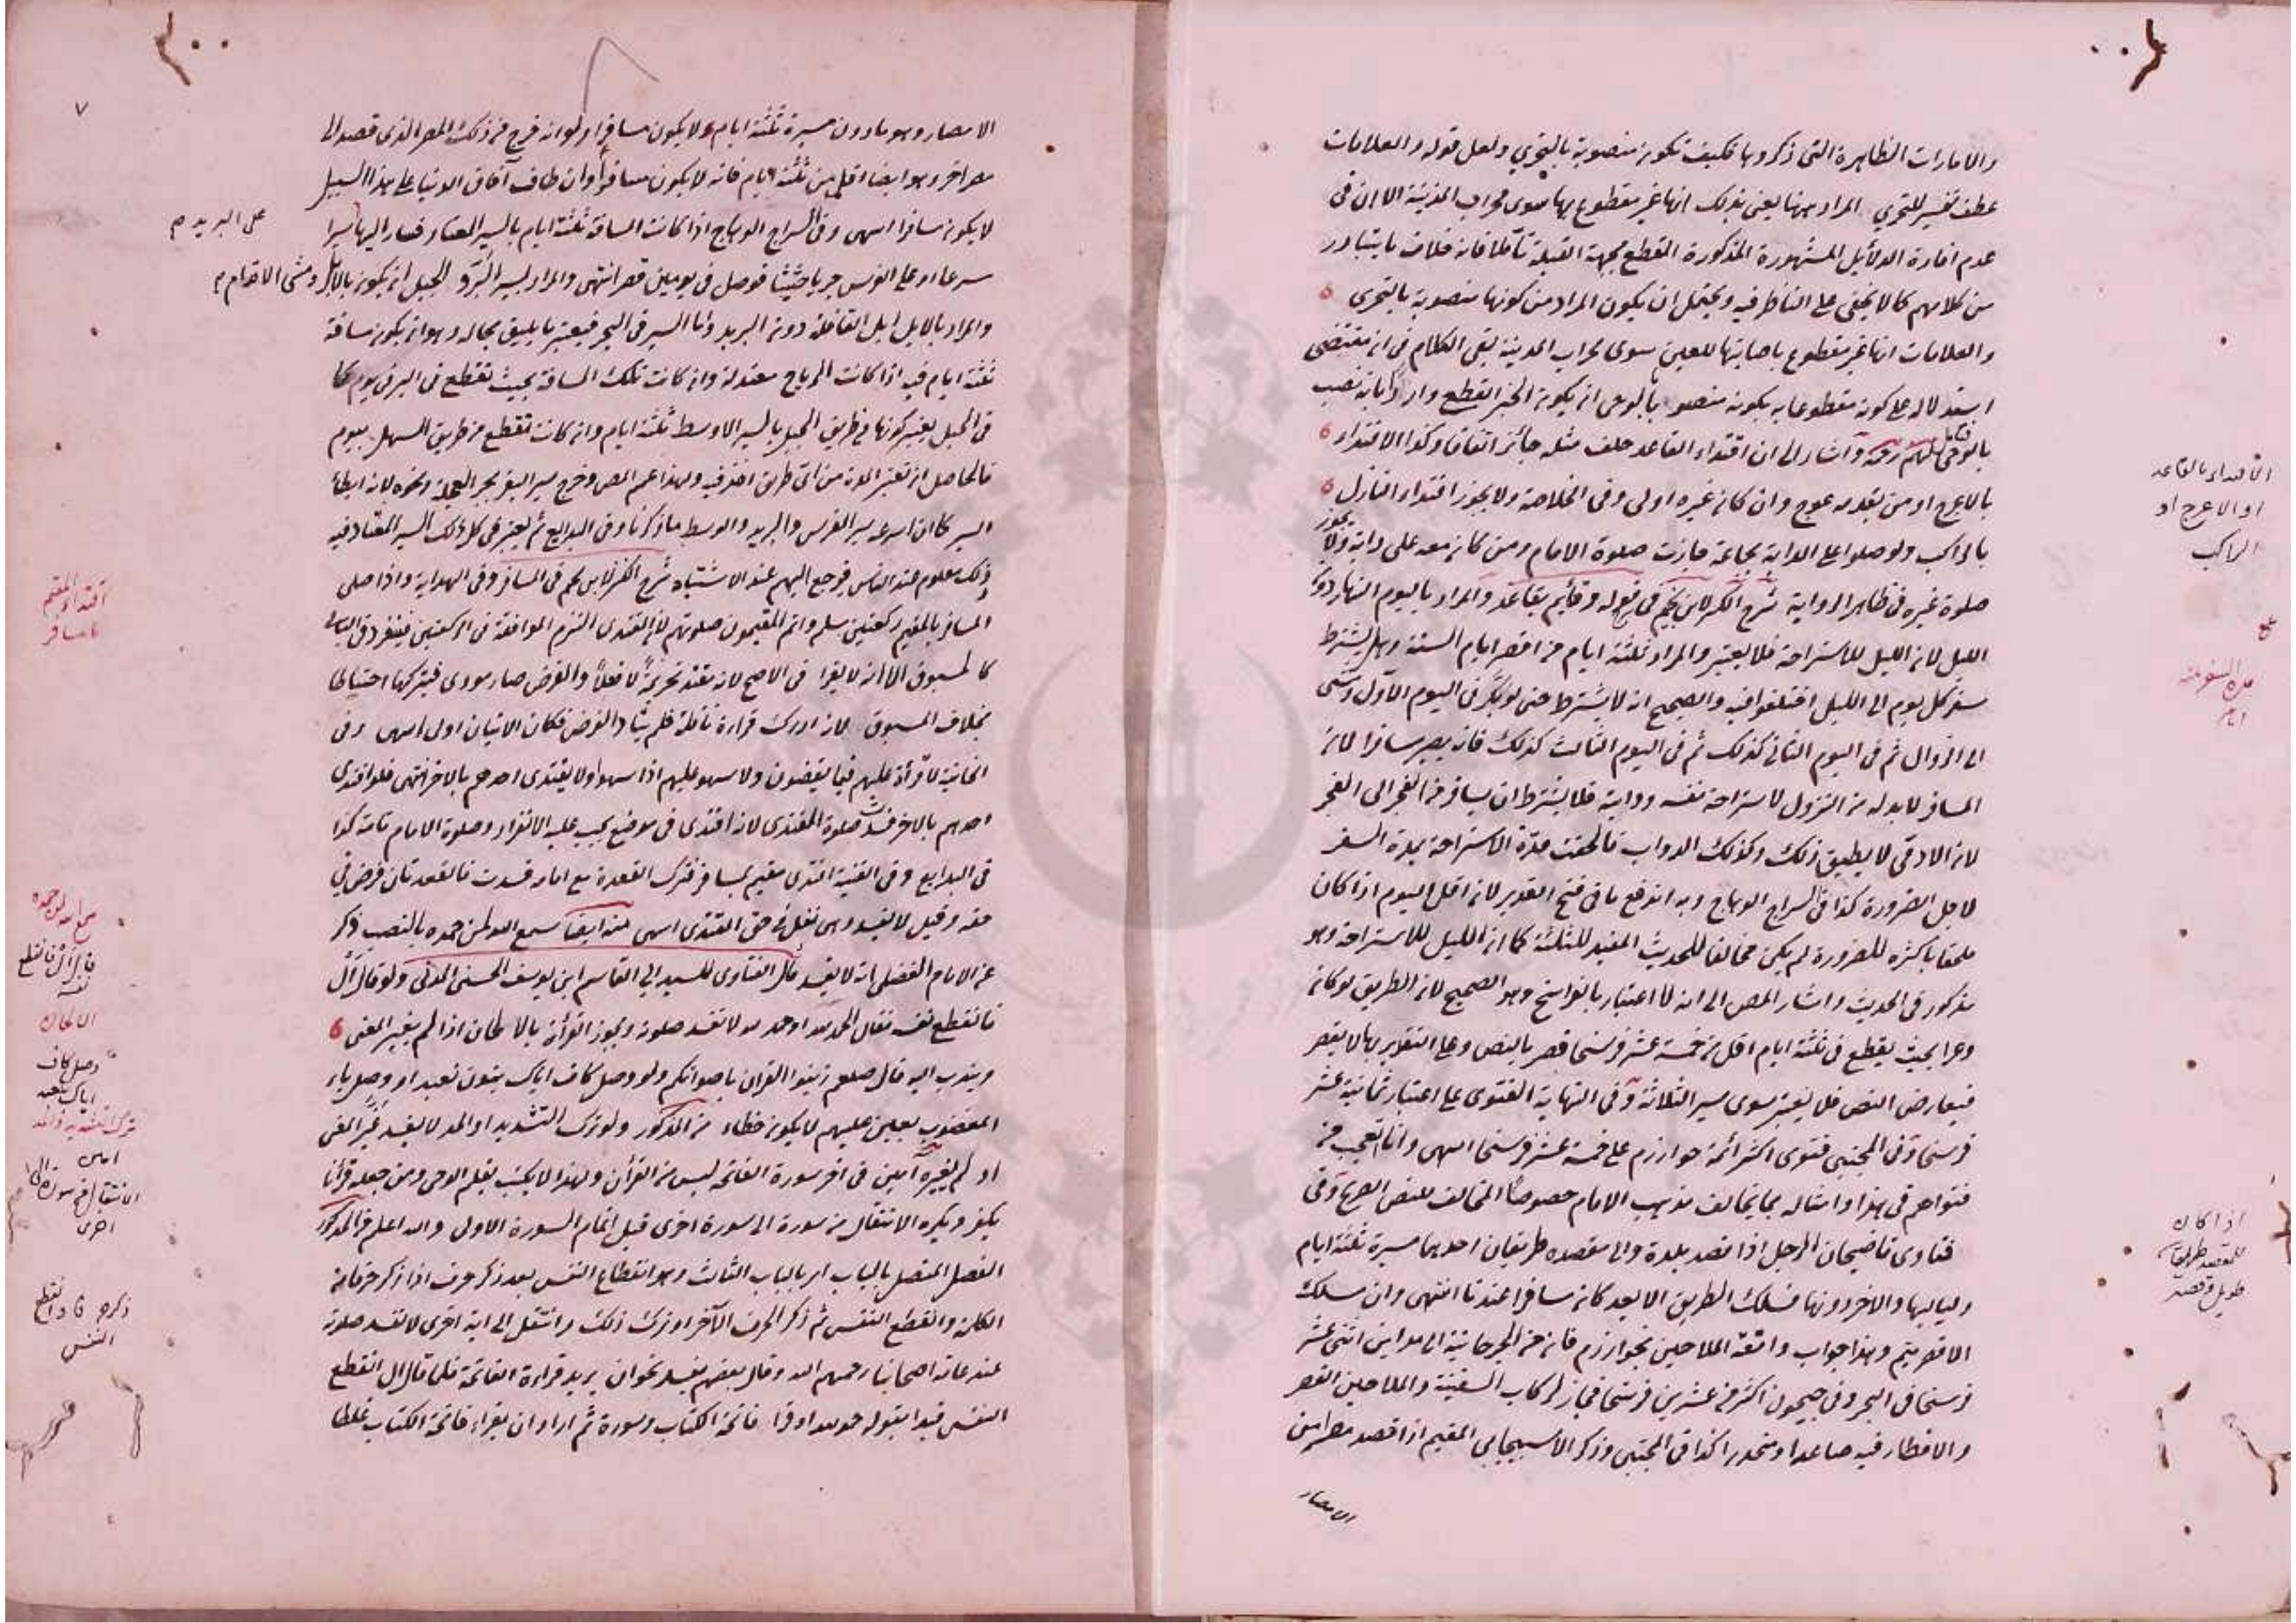 والامارات الظاهرة التي ذكروها فكيف تكون منصوبة بالتحري ولعل قوله والعلامات
عطف تفسير للتحري المراد بهنا يعني بذلك انها غير مقطوع بها سوى محراب المدينة الا ان في
عدم افادة الدلائل المشهورة المذكورة القطع بجهة القبلة تأملا فانه خلاف ما يتبادر
من كلامهم كما لا يخفى على الناظر فيه ويحتمل ان يكون المراد من كونها منصوبة بالتحري
والعلامات انها غير مقطوع باصابتها للعين سوى محراب المدينة بقي الكلام في ان مقتضى
استدلاله على كونه مقطوعا به بكونه منصوبا بالوحي ان يكون الخبر القطع وارداً بانه نصب
بالوحي واشار الى ان اقتداء القاعد خلف مثله جائز اتفاقا وكذا الاقتداء
بالاعرج او من بقدمه عوج وان كان غيره اولى وفي الخلاصة ولا يجوز اقتداء النازل
بالراكب ولو صلوا على الدابة بجماعة جازت صلوة الامام ومن كان معه على دابة ولا يجوز
صلوة غيره في ظاهر الرواية شرح الكنز لابن نجيم في قوله وقائم بقاعد والمراد باليوم النهار دون
الليل لان الليل للاستراحة فلا يعتبر والمراد ثلثة ايام من اقصر ايام السنة وهل يشترط
سفر كل يوم الى الليل اختلفوا فيه والصحيح انه لا يشترط حتى لو بكر في اليوم الاول ومشى
الى الزوال ثم في اليوم الثاني كذلك ثم في اليوم الثالث كذلك فانه يصير مسافرا لان
المسافر لا بد له من النزول لاستراحة نفسه ودابته فلا يشترط ان يسافر من الفجر الى الفجر
لان الادمي لا يطيق ذلك وكذلك الدواب فالحقت مدة الاستراحة بمدة السفر
لاجل الضرورة كذا في السراج الوهاج وبه اندفع ما في فتح القدير لان اقل اليوم اذا كان
ملحقا باكثره للضرورة لم يكن مخالفا للحديث المفيد للثلثة كما ان الليل للاستراحة وهو
مذكور في الحديث واشار المص الى انه لا اعتبار بالفراسخ وهو الصحيح لان الطريق لو كان
وعرا بحيث يقطع في ثلثة ايام اقل من خمسة عشر فرسخا قصر بالنص وعلى التقدير بها لا يقصر
فيعارض النص فلا يعتبر سوى سير الثلاثة وفي النهاية الفتوى على اعتبار ثمانية عشر
فرسخا وفي المجتبى فتوى اكثر ائمة خوارزم على خمسة عشر فرسخا انتهى وانا اتعجب من
فتواهم في هذا وامثاله بما يخالف مذهب الامام خصوصا المخالف للنص الصريح وفي
فتاوى قاضيخان الرجل اذا قصد بلدة والى مقصده طريقان احدهما مسيرة ثلثة ايام
ولياليها والاخر دونها فسلك الطريق الابعد كان مسافرا عندنا انتهى وان سلك
الاقصر يتم وهذا جواب واقعة الملاحين بخوارزم فان من الجرجانية الى مدانين اثنى عشر
فرسخا في البحر وفي جيحون اكثر من عشرين فرسخا فجاز لركاب السفينة والملاحين القصر
والافطار فيه صاعدا ومنحدرا كذا في المجتبى وذكر الاسبيجابي المقيم اذا قصد مصرا من
الامصار
الاقتداء بالقاعد
او الاعرج او
الراكب
مدة السفر ثلثة
ايام
اذا كان
للمقصد طريقان
طويل وقصير
٧
الامصار وهو ما دون مسيرة ثلثة ايام ولا يكون مسافرا ولو انه خرج من ذلك المصر الذي قصد الى
مصر اخر وهو ايضا اقل من ثلثة ايام فانه لا يكون مسافرا وان طاف آفاق الدنيا على هذا السبيل
لا يكون مسافرا انتهى وفي السراج الوهاج اذا كانت المسافة ثلثة ايام بالسير المعتاد فسار اليها سيرا
على البريد م
سرعا او على الفرس جريا حثيثا فوصل في يومين قصر انتهى والمراد بسير البر والجبل ان يكون بالابل ومشى الاقدام
والمراد بالابل ابل القافلة دون البريد واما السير في البحر فيعتبر ما يليق بحاله وهو ان يكون مسافة
ثلثة ايام فيه اذا كانت الرياح معتدلة وان كانت تلك المسافة بحيث تقطع في البر في يوم كما
في الجبل يعتبر كونها من طريق الجبل بالسير الاوسط ثلثة ايام وان كانت تقطع من طريق السهل بيوم
فالحاصل ان تعتبر المدة من اي طريق اخذ فيه ولهذا عمم المص وخرج سير البقر بجر العجلة ونحوه لانه ابطأ
السير كما ان اسرعه سير الفرس والبريد والوسط ما ذكرنا وفي البدايع ثم يعتبر في كل ذلك السير المعتاد فيه
وذلك معلوم عند الناس فيرجع اليهم عند الاشتباه شرح الكنز لابن نجيم في المسافر وفي الهداية واذا صلى
المسافر بالمقيم ركعتين سلم واتم المقيمون صلوتهم لان المقتدي التزم الموافقة في الركعتين فينفرد في الباقي
كالمسبوق الا انه لا يقرا في الاصح لانه مقتد تحريمة لا فعلا والفرض صار مودى فيتركها احتياطا
بخلاف المسبوق لانه ادرك قراءة نافلة فلم يتاد الفرض فكان الاتيان اولى انتهى وفي
الخانية لا قراءة عليهم فيما يقضون ولا سهو عليهم اذا سهوا ولا يقتدى احدهم بالاخر انتهى فلو اقتدى
احدهم بالاخر فسدت صلوة المقتدى لانه اقتدى في موضع يجب عليه الانفراد وصلوة الامام تامة كذا
في البدايع وفي القنية اقتدى مقيم بمسافر فترك القعدة مع امامه فسدت فالقعدتان فرض في
حقه وقيل لا يفسد وهي نفل في حق المقتدى انتهى منه ايضا سمع الله لمن حمده بالنصب ذكر
عن الامام الفضلي انه لا يفسد قال الفتاوى للسيد ابي القاسم ابن يوسف الحسني المدني ولو قال ال
فانقطع نفسه فقال الحمد لله او حمد لله لا تفسد صلوته ويجوز القرأة بالالحان اذا لم يغير المعنى
ويندب اليه قال صلعم زينوا القران باصواتكم ولو وصل كاف اياك بنون نعبد او وصل باء
المغضوب بعين عليهم لا يكون خطاء من المذكور ولو ترك التشديد او المد لا يفسد غير المعنى
او لم يغيره آمين في اخر سورة الفاتحة ليس من القرأن ولهذا لا يكتب بقلم الوحي ومن جعله قرأنا
يكفر ويكره الانتقال من سورة الى سورة اخرى قبل اتمام السورة الاولى والله اعلم من المذكور
الفصل المتصل بالباب ار بالباب الثالث وهو انقطاع النفس بعد ذكر حرف اذا ذكر حرفا من
الكلمة وانقطع النفس ثم ذكر الحرف الآخر او ترك ذلك وانتقل الى اية اخرى لا تفسد صلوته
عند عامة اصحابنا رحمهم الله وقال بعضهم يفسد نحو ان يريد قراءة الفاتحة فلما قال ال انقطع
النفس فيدا بقوله حمد لله او قرا فاتحة الكتاب وسورة ثم اراد ان يقراء فاتحة الكتاب غلطا
اقتداء المقيم
بالمسافر
سمع الله لمن حمده
الالحان
وصل كاف
اياك نعبد
آمين
الانتقال من سورة الى
اخرى
ذكر حرفا وانقطع
النفس